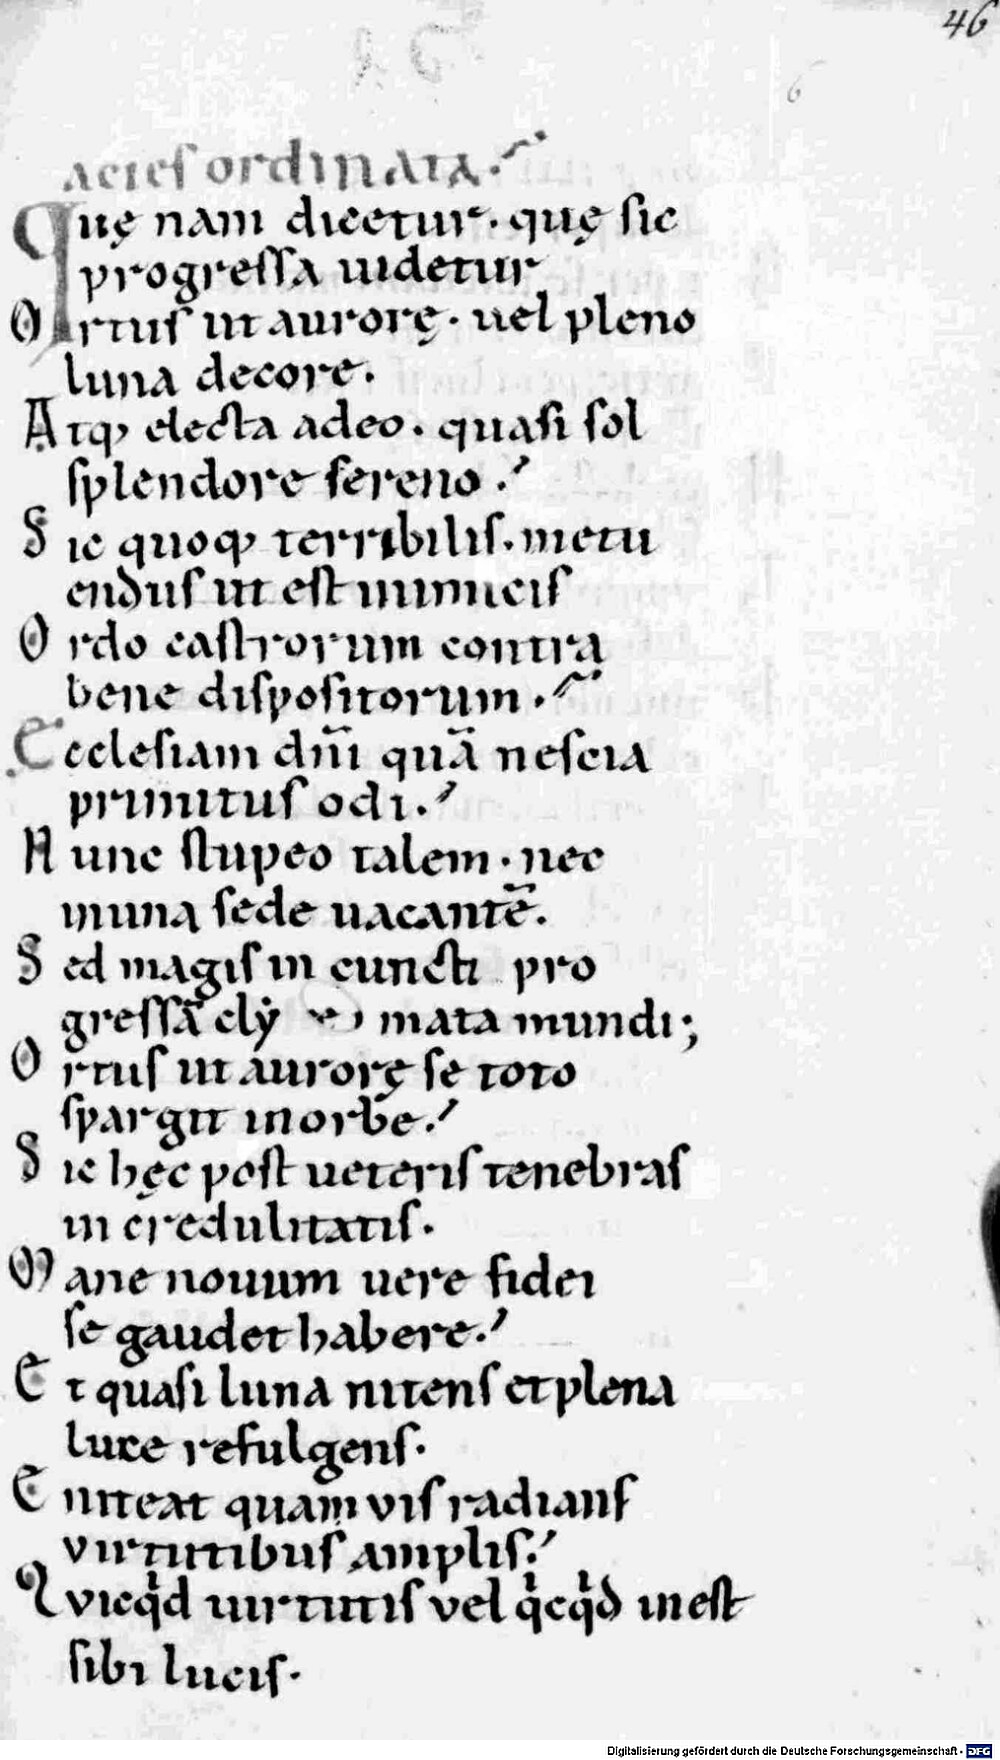 46
6
acies ordinata.
Quę nam dicetur. quę sic
progressa uidetur
Ortus ut aurorę. uel pleno
luna decore.
Atq; electa adeo. quasi sol
splendore sereno.
Sic quoq; terribilis. metu
endus ut est inimicis
Ordo castrorum contra
bene dispositorum.
Ecclesiam dnī quā nescia
primitus odi.
Nunc stupeo talem. nec
in una sede uacantē.
Sed magis in cuncti pro
gressā cly mata mundi;
Ortus ut aurorę se toto
spargit in orbe.
Sic hęc post ueteris tenebras
in credulitatis.
Mane nouum uere fidei
se gaudet habere.
Et quasi luna nitens et plena
luce refulgens.
Eniteat quam vis radians
virtutibus amplis.
Qvicqd uirtutis vel qcqd inest
sibi lucis.
Digitalisierung gefördert durch die Deutsche Forschungsgemeinschaft - DFG